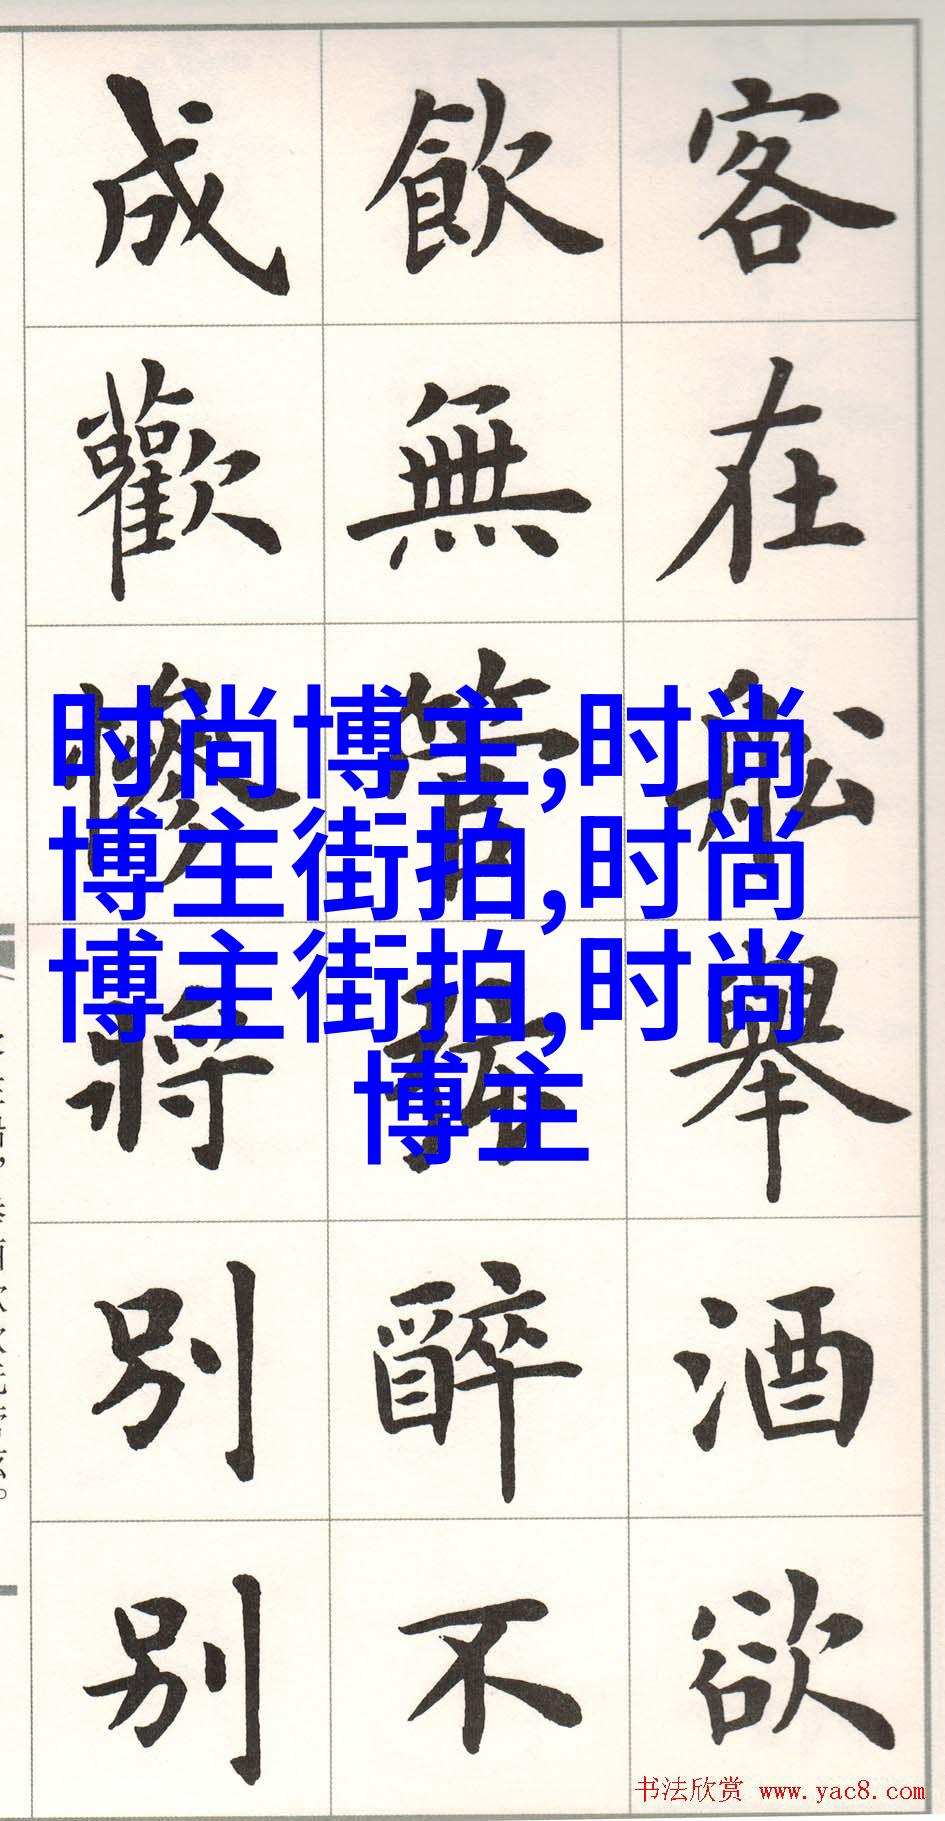 客在舩舉酒欲
飲無管絃醉不
成歡慘將別別
时尚博主,时尚
博主街拍,时尚
博主街拍,时尚
博主
书法欣赏 www.yac8.com